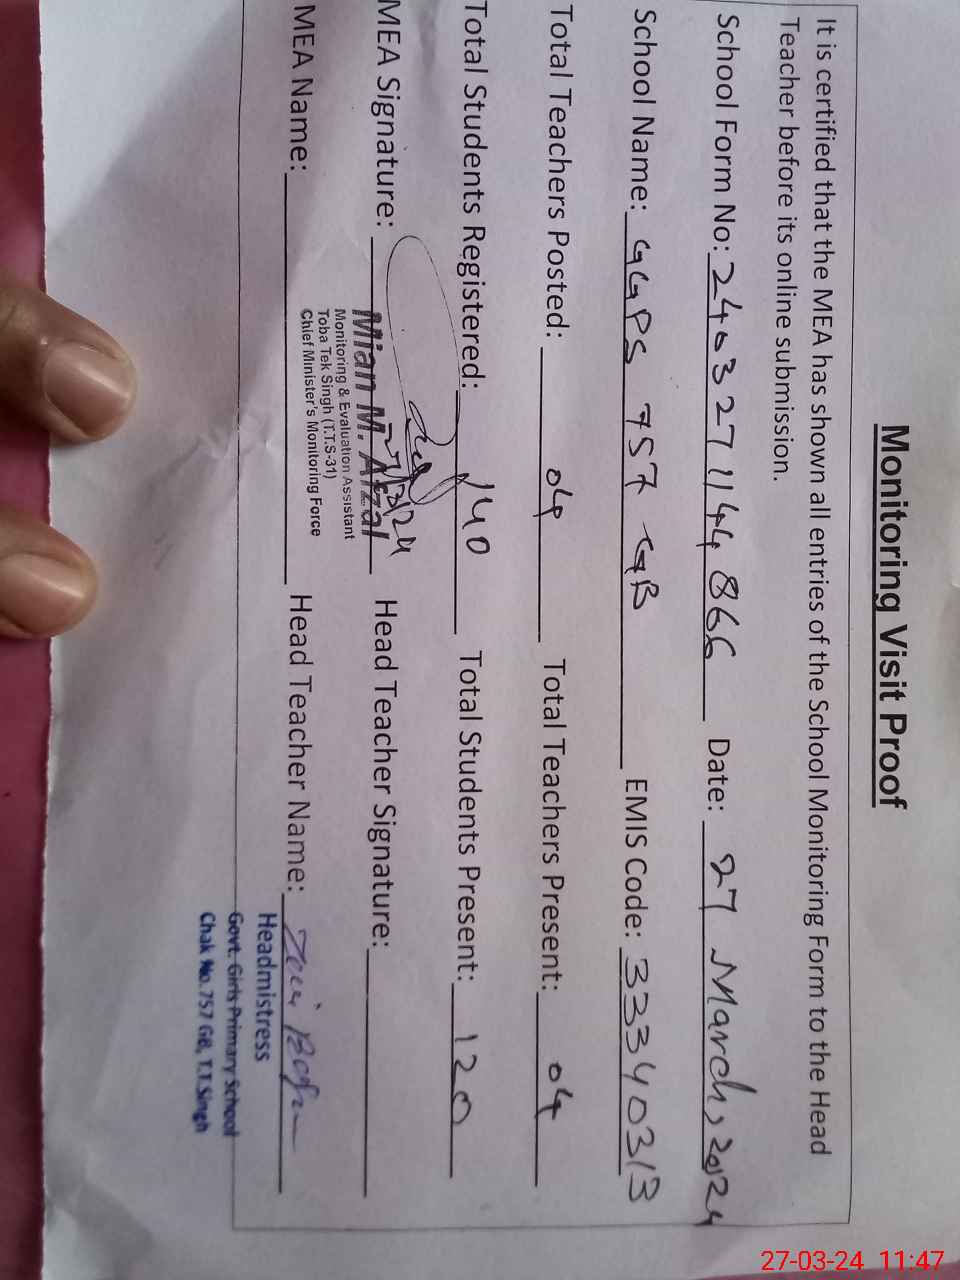 Monitoring Visit Proof
It is certified that the MEA has shown all entries of the School Monitoring Form to the Head
Teacher before its online submission.
School Form No: 2403271144866 Date: 27 March, 2024
School Name: GGPS 757 GB EMIS Code: 33340313
Total Teachers Posted: 04 Total Teachers Present: 04
Total Students Registered: 140 Total Students Present: 120
MEA Signature: 27/3/24 Head Teacher Signature:
Mian M. Afzal
Monitoring & Evaluation Assistant
Toba Tek Singh (T.T.S-31)
Chief Minister's Monitoring Force
MEA Name: Head Teacher Name:
Headmistress
Govt. Girls Primary School
Chak No. 757 GB, T.T.Singh
27-03-24 11:47